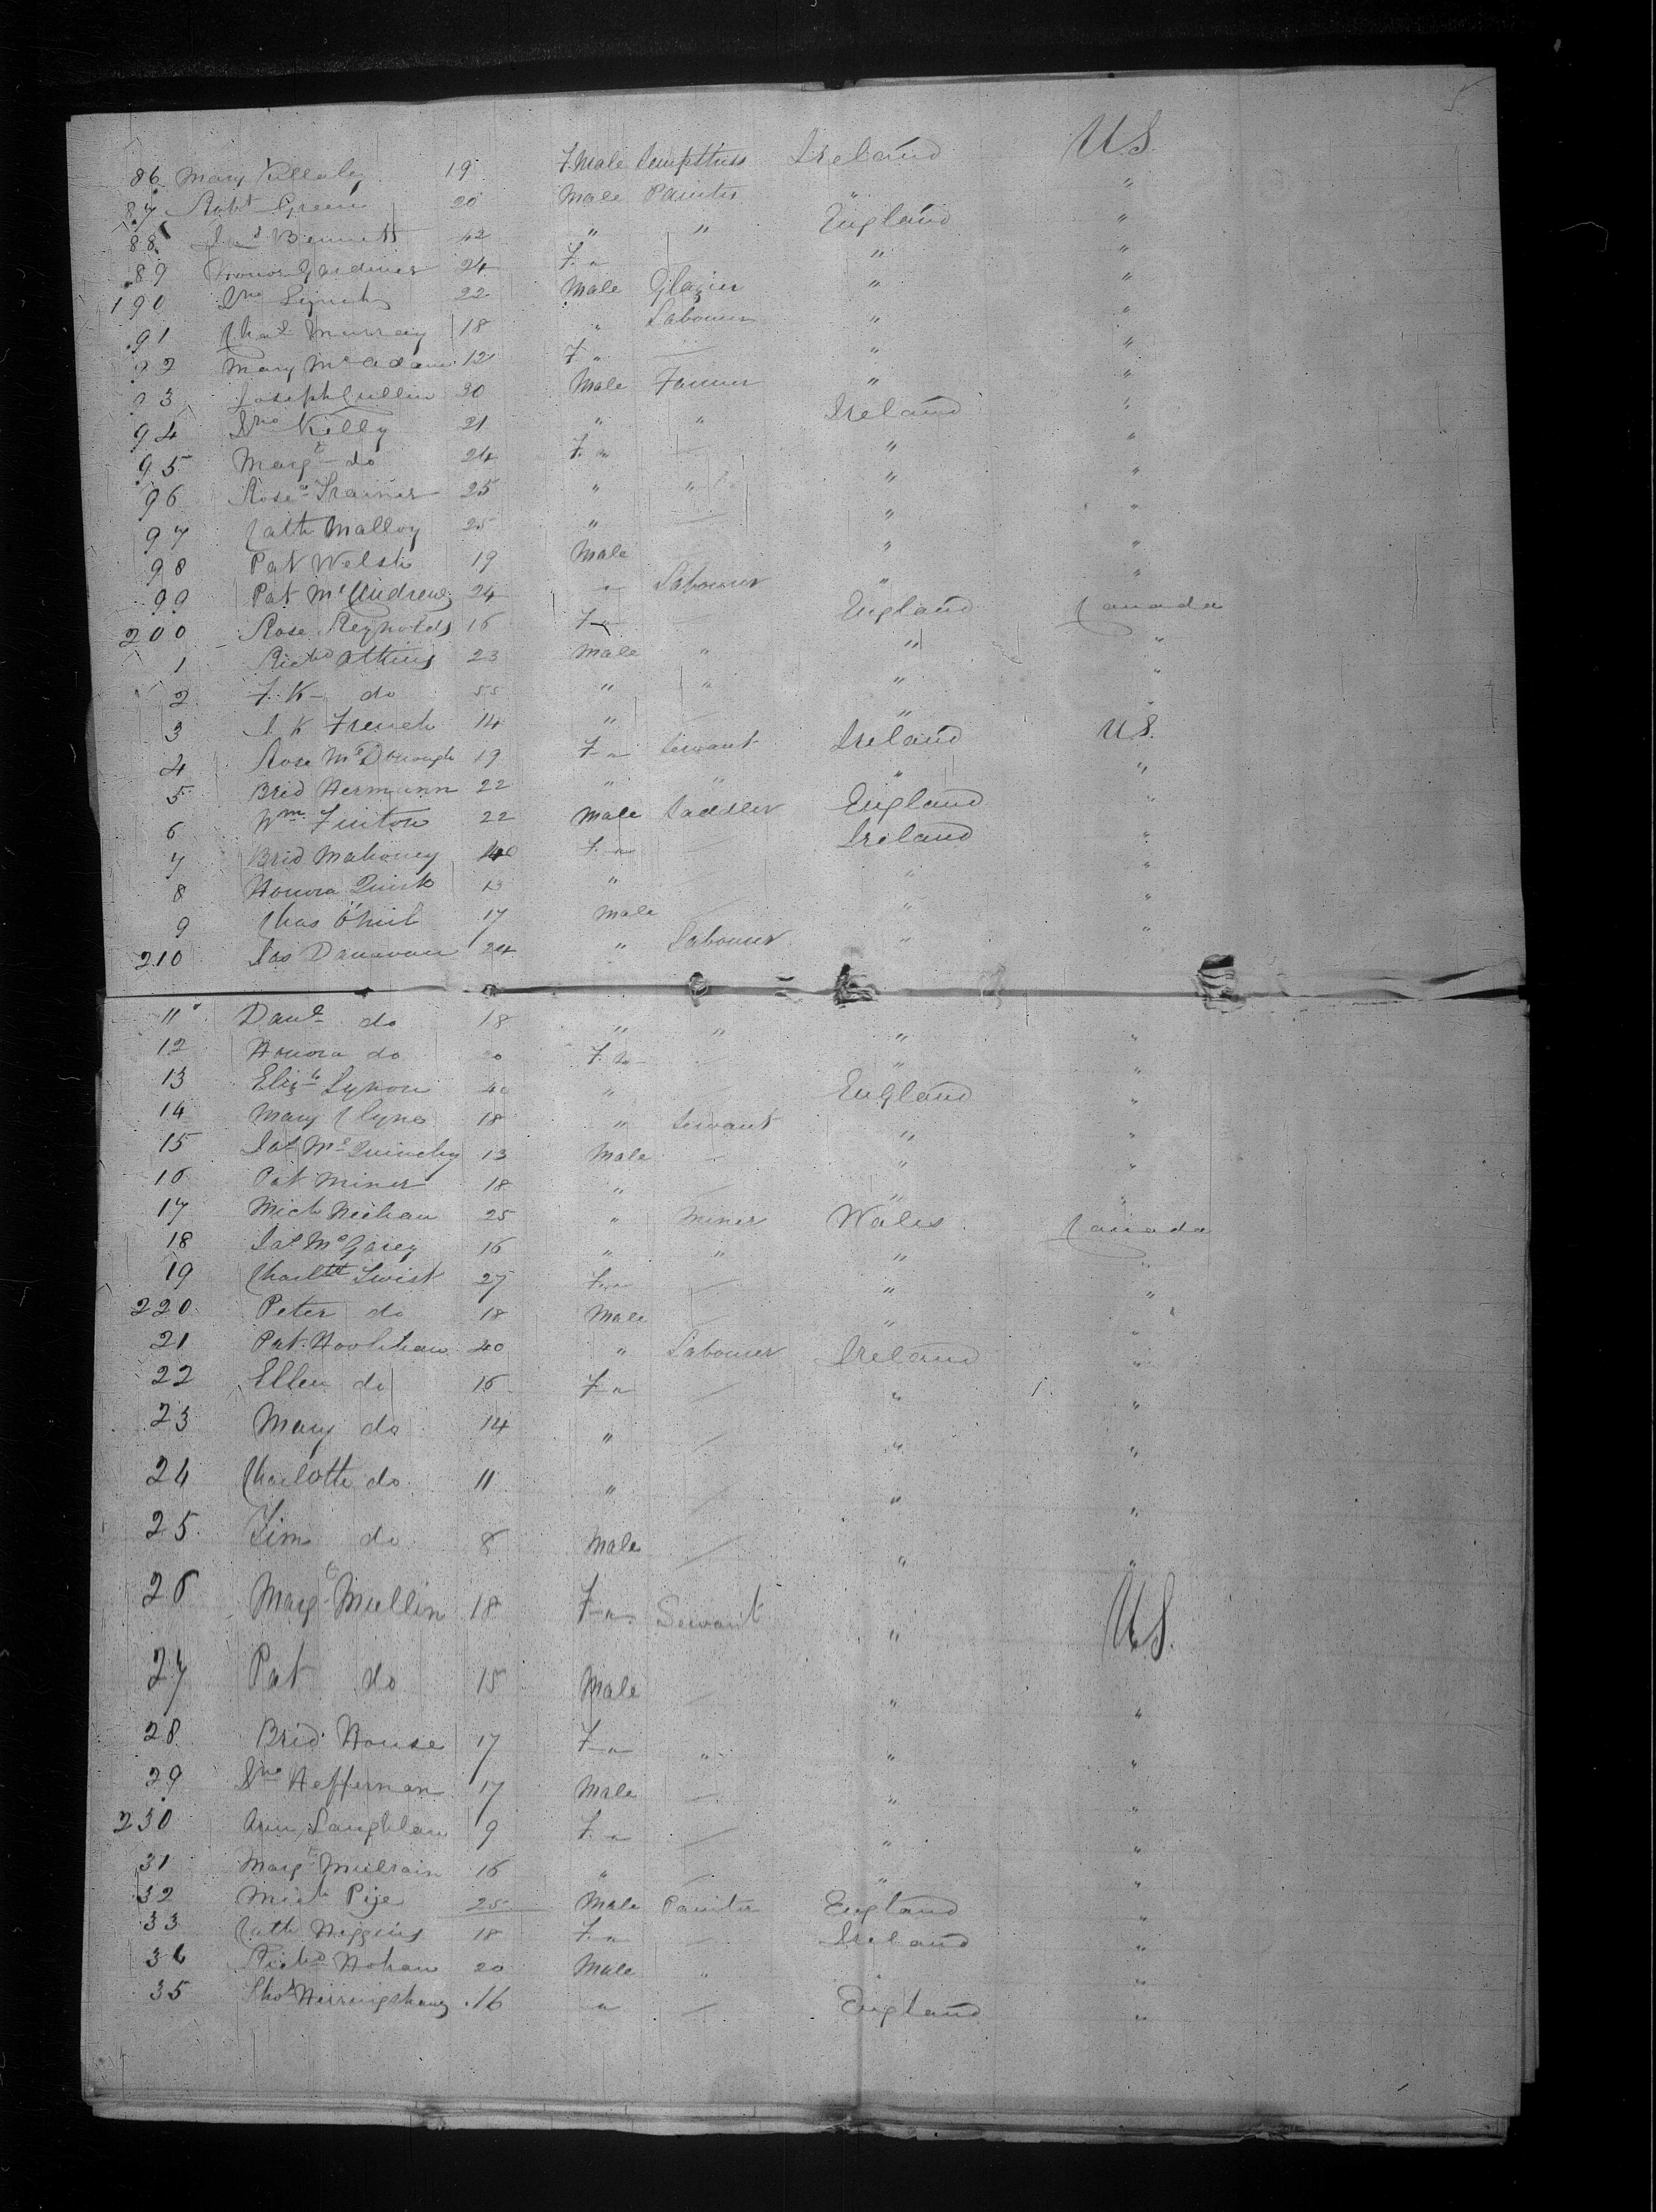 86 Mary Killaley 19 F.male Sempstress Ireland U.S.
87 Robt Green 20 Male Painter " "
88 Jas Bennett 42 " " England "
89 Honor Gardiner 24 F. " " "
190 Jno Lynch 22 Male Glazier " "
91 Chas Murray 18 " Labourer " "
92 Mary McAdam 12 F " — " "
93 Joseph Cullen 30 Male Farmer " "
94 Jno Kelly 21 " " Ireland "
95 Margt do 24 F. " — " "
96 Rose Trainer 25 " " " "
97 Cath Malloy 25 " — " "
98 Pat Welsh 19 Male " "
99 Pat McAndrew 24 " Labourer " "
200 Rose Reynolds 16 F " — England Canada
1 Richd Atkins 23 Male " " "
2 F. K— do 55 " " " "
3 J. K French 14 " — "
4 Rose McDonough 19 F " Servant Ireland U.S.
5 Brid Hermann 22 " " " "
6 Wm Finton 22 Male Saddler England "
7 Brid Mahoney 40 F. " — Ireland "
8 Honora Quirk 13 " " "
9 Chas O'Neil 17 Male — " "
210 Jas Danavan 24 " Labourer " "
11 Danl do 18 " " " "
12 Honora do F. " " "
13 Elizh Lynon 40 " England "
14 Mary Clyne 18 " Servant " "
15 Jas McQuinchy 13 Male — " "
16 Pat Miner 18 " — " "
17 Mich Meehan 25 " Miner Wales Canada
18 Jas McGarey 16 " " " "
19 Charltte Twist 27 F " — " "
220 Peter do 18 Male — " "
21 Pat Hoolihan 40 " Labourer Ireland "
22 Ellen do 16 F " — " "
23 Mary do 14 " — " "
24 Charlotte do 11 " — " "
25 Tim do 8 Male — " "
26 Margt Mullin 18 F " Servant " U.S.
27 Pat do 15 Male — " "
28 Brid House 17 F " " " "
29 Jno Heffernan 17 Male — " "
230 Ann Laughlan 9 F. " — " "
31 Margt Mulrain 16 " — " "
32 Mich Pije 25 Male Painter England "
33 Cath Higgins 18 F. " — Ireland "
34 Richd Hohan 20 Male " " "
35 Thos Herringshaw 16 " — England "